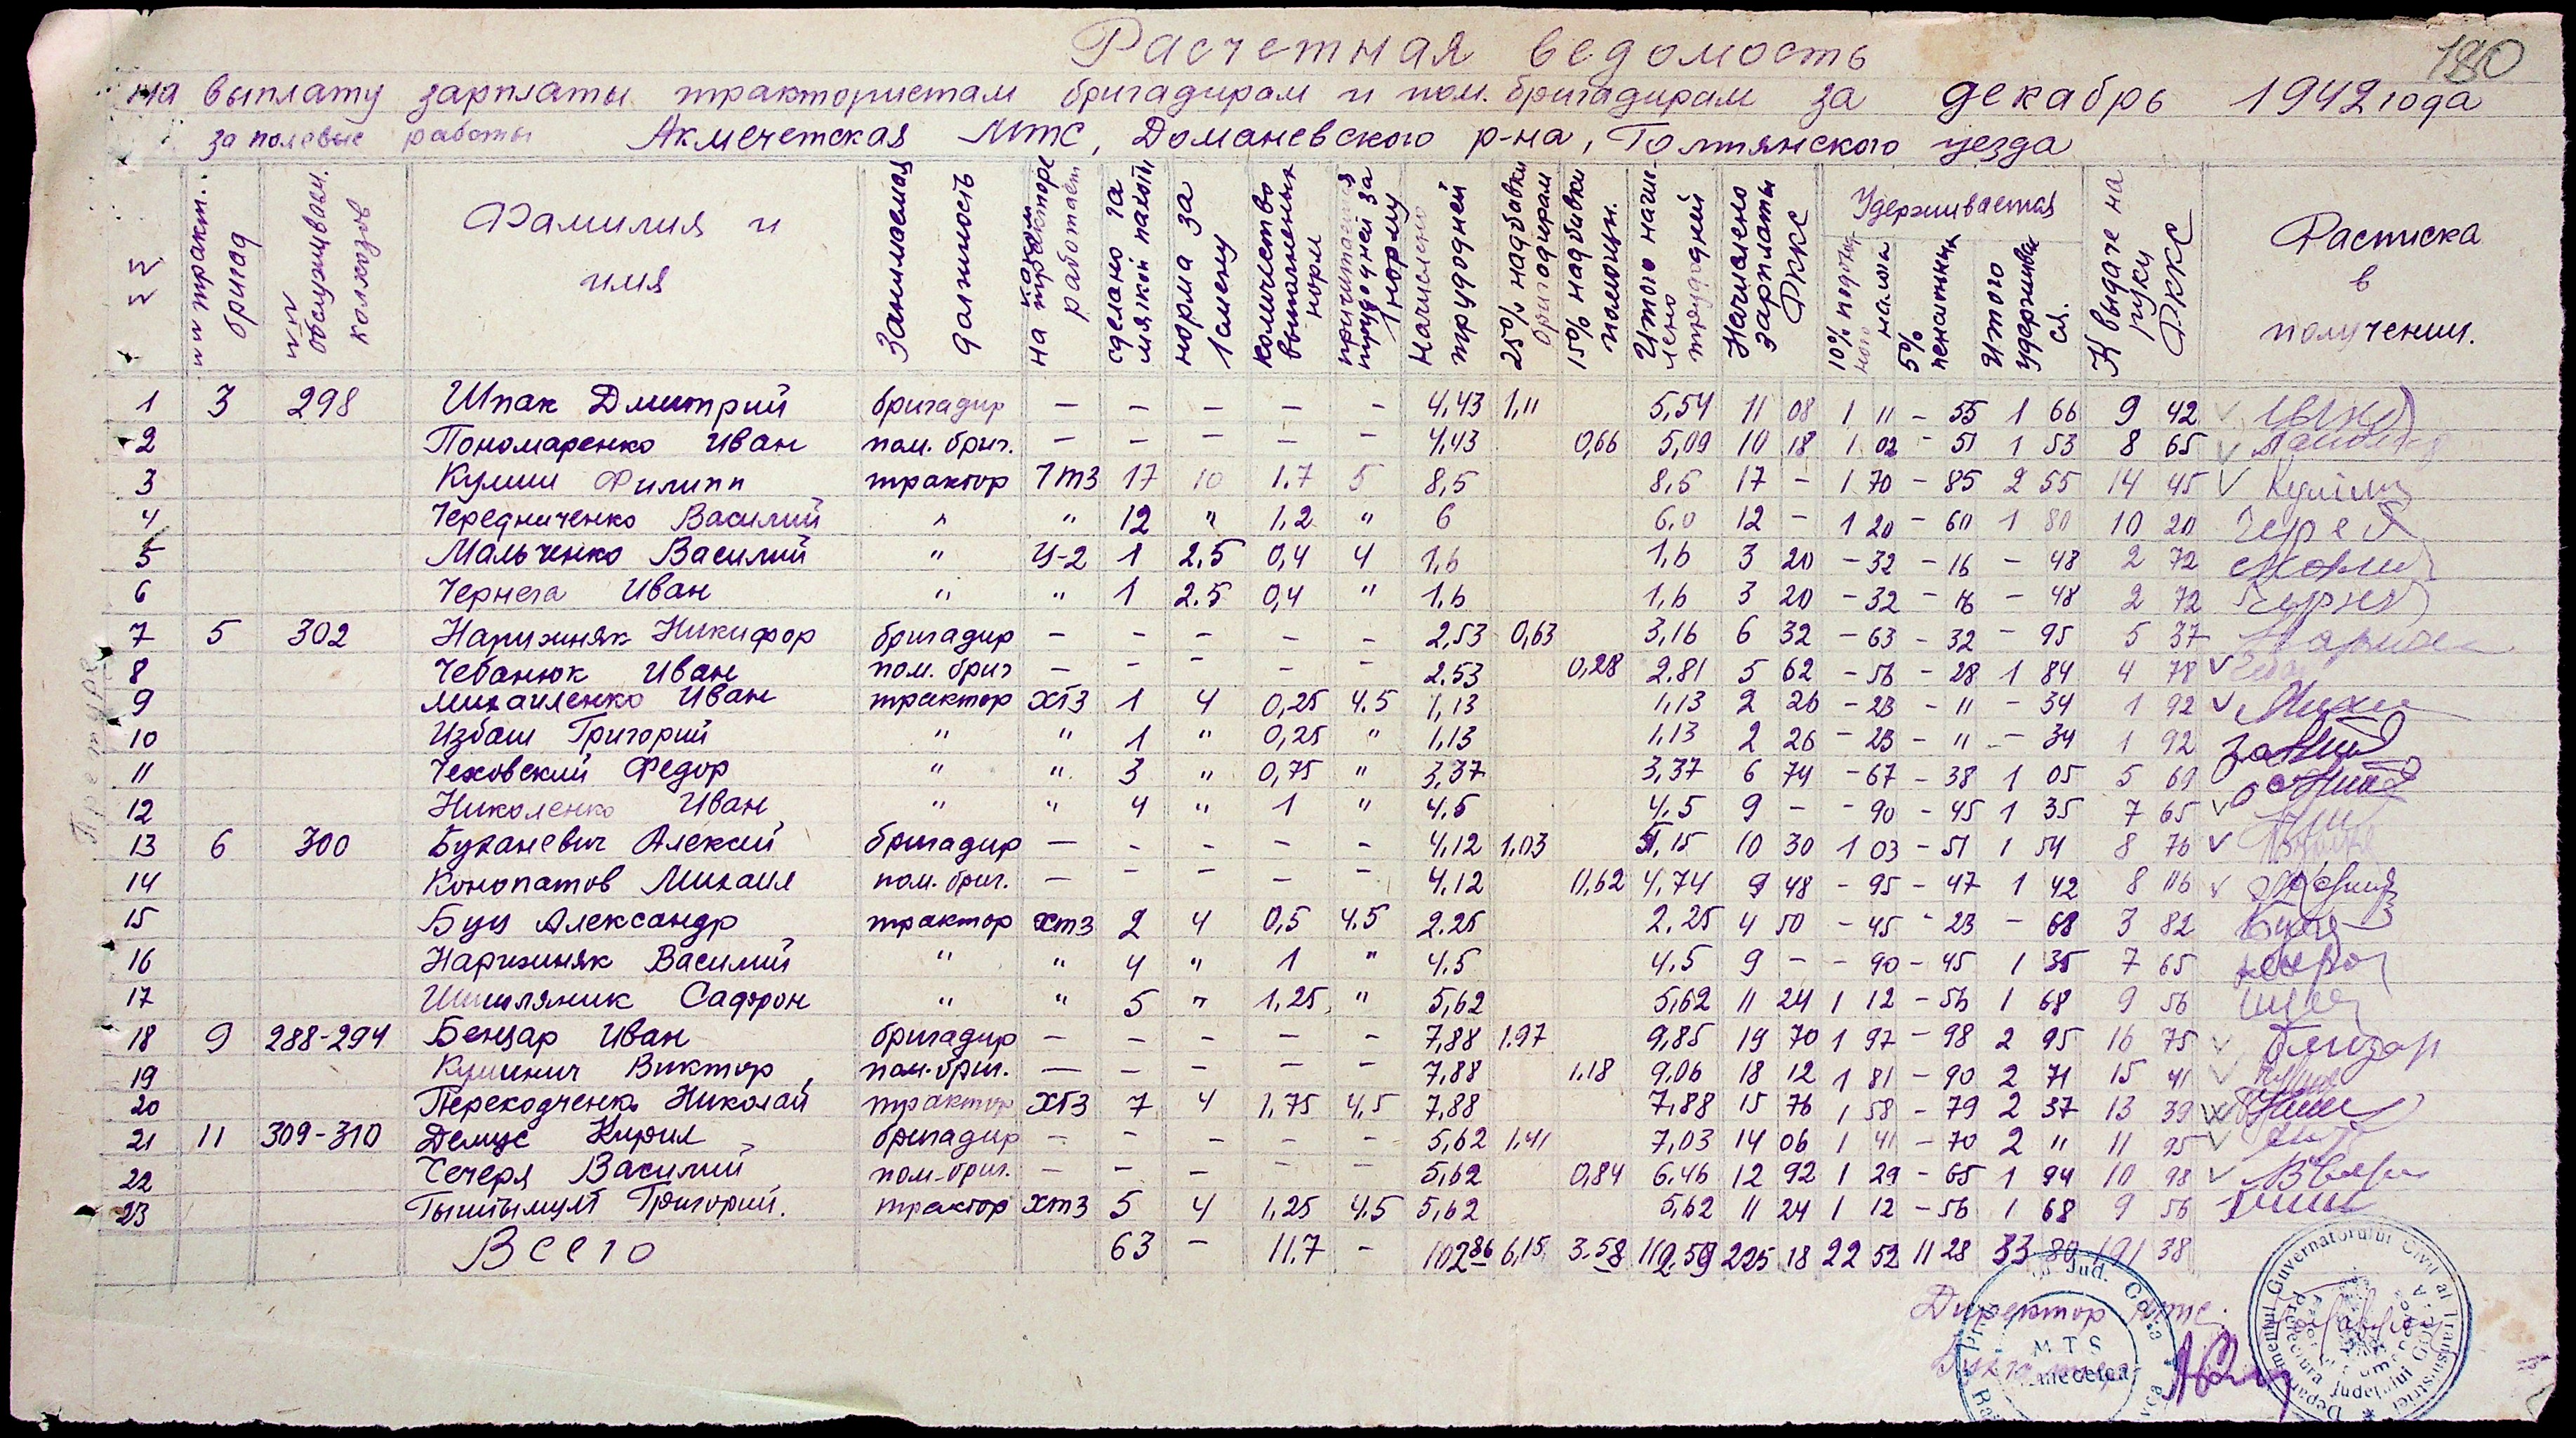 180
Расчетная ведомость
на выплату зарплаты трактористам бригадирам и пом. бригадирам за декабрь 1942 года
за полевые работы Акмечетская МТС, Доманевского р-на, Голтянского уезда
№№ №№ тракт. бригад №№ обслуживаем. колхозов Фамилия и имя Занимаемая должность на каком тракторе работает сделано га мягкой пахоты норма за 1 смену количество выполненных норм причитается трудодней за 1 норму Начислено трудодней 25% надбавки бригадирам 15% надбавки помощн. Итого начислено трудодней Начислено зарплаты РККС Удерживается 10% подоходного налога 5% пенсионных Итого удерживается К выдаче на руки РККС Расписка в получении.
1 3 298 Шпак Дмитрий бригадир — — — — — 4,43 1,11 5,54 11 08 1 11 – 55 1 66 9 42
2 Пономаренко Иван пом. бриг. — — — — — 4,43 0,66 5,09 10 18 1 02 – 51 1 53 8 65
3 Кулиш Филипп трактор УТЗ 17 10 1.7 5 8,5 8,5 17 – 1 70 – 85 2 55 14 45
4 Чередниченко Василий " " 12 " 1,2 " 6 6,0 12 – 1 20 – 60 1 80 10 20
5 Мальченко Василий " У-2 1 2,5 0,4 4 1,6 1,6 3 20 – 32 – 16 – 48 2 72
6 Чернега Иван " " 1 2.5 0,4 " 1,6 1,6 3 20 – 32 – 16 – 48 2 72
7 5 302 Нарижняк Никифор бригадир — — — — — 2,53 0,63 3,16 6 32 – 63 – 32 – 95 5 37
8 Чебанюк Иван пом. бриг — — — — — 2.53 0,28 2.81 5 62 – 56 – 28 1 84 4 78
9 Михаиленко Иван трактор ХТЗ 1 4 0,25 4.5 1,13 1,13 2 26 – 23 – 11 – 34 1 92
10 Избаш Григорий " " 1 " 0,25 " 1,13 1,13 2 26 – 23 – 11 – 34 1 92
11 Чеховский Федор " " 3 " 0,75 " 3,37 3,37 6 74 – 67 – 38 1 05 5 69
12 Николенко Иван " " 4 " 1 " 4,5 4,5 9 – – 90 – 45 1 35 7 65
13 6 300 Буханевич Алексий бригадир — — — — — 4,12 1,03 5,15 10 30 1 03 – 51 1 54 8 76
14 Конопатов Михаил пом. бриг. — — — — — 4,12 0,62 4,74 9 48 – 95 – 47 1 42 8 06
15 Буц Александр трактор ХТЗ 2 4 0,5 4.5 2.25 2.25 4 50 – 45 – 23 – 68 3 82
16 Нарижняк Василий " " 4 " 1 " 4.5 4.5 9 – – 90 – 45 1 35 7 65
17 Шишляник Сафрон " " 5 " 1,25 " 5,62 5,62 11 24 1 12 – 56 1 68 9 56
18 9 288-294 Бенцар Иван бригадир — — — — — 7,88 1.97 9,85 19 70 1 97 – 98 2 95 16 75
19 Кушнич Виктор пом. бриг. — — — — — 7,88 1.18 9.06 18 12 1 81 – 90 2 71 15 41
20 Переходченко Николай трактор ХТЗ 7 4 1,75 4,5 7,88 7,88 15 76 1 58 – 79 2 37 13 39
21 11 309-310 Демус Кирил бригадир — — — — — 5,62 1,41 7,03 14 06 1 41 – 70 2 11 11 95
22 Чечеря Василий пом. бриг. — — — — — 5,62 0,84 6.46 12 92 1 29 – 65 1 94 10 98
23 Григорий. трактор ХТЗ 5 4 1,25 4.5 5,62 5,62 11 24 1 12 – 56 1 68 9 56
Всего 63 – 11.7 – 102 86 6,15 3.58 112.59 225 18 22 52 11 28 33 80 191 38
Директор МТС:
Бухгалтер
MTS
Departamentul Guvernatorului Civil al Transnistriei
Prefectura Județului